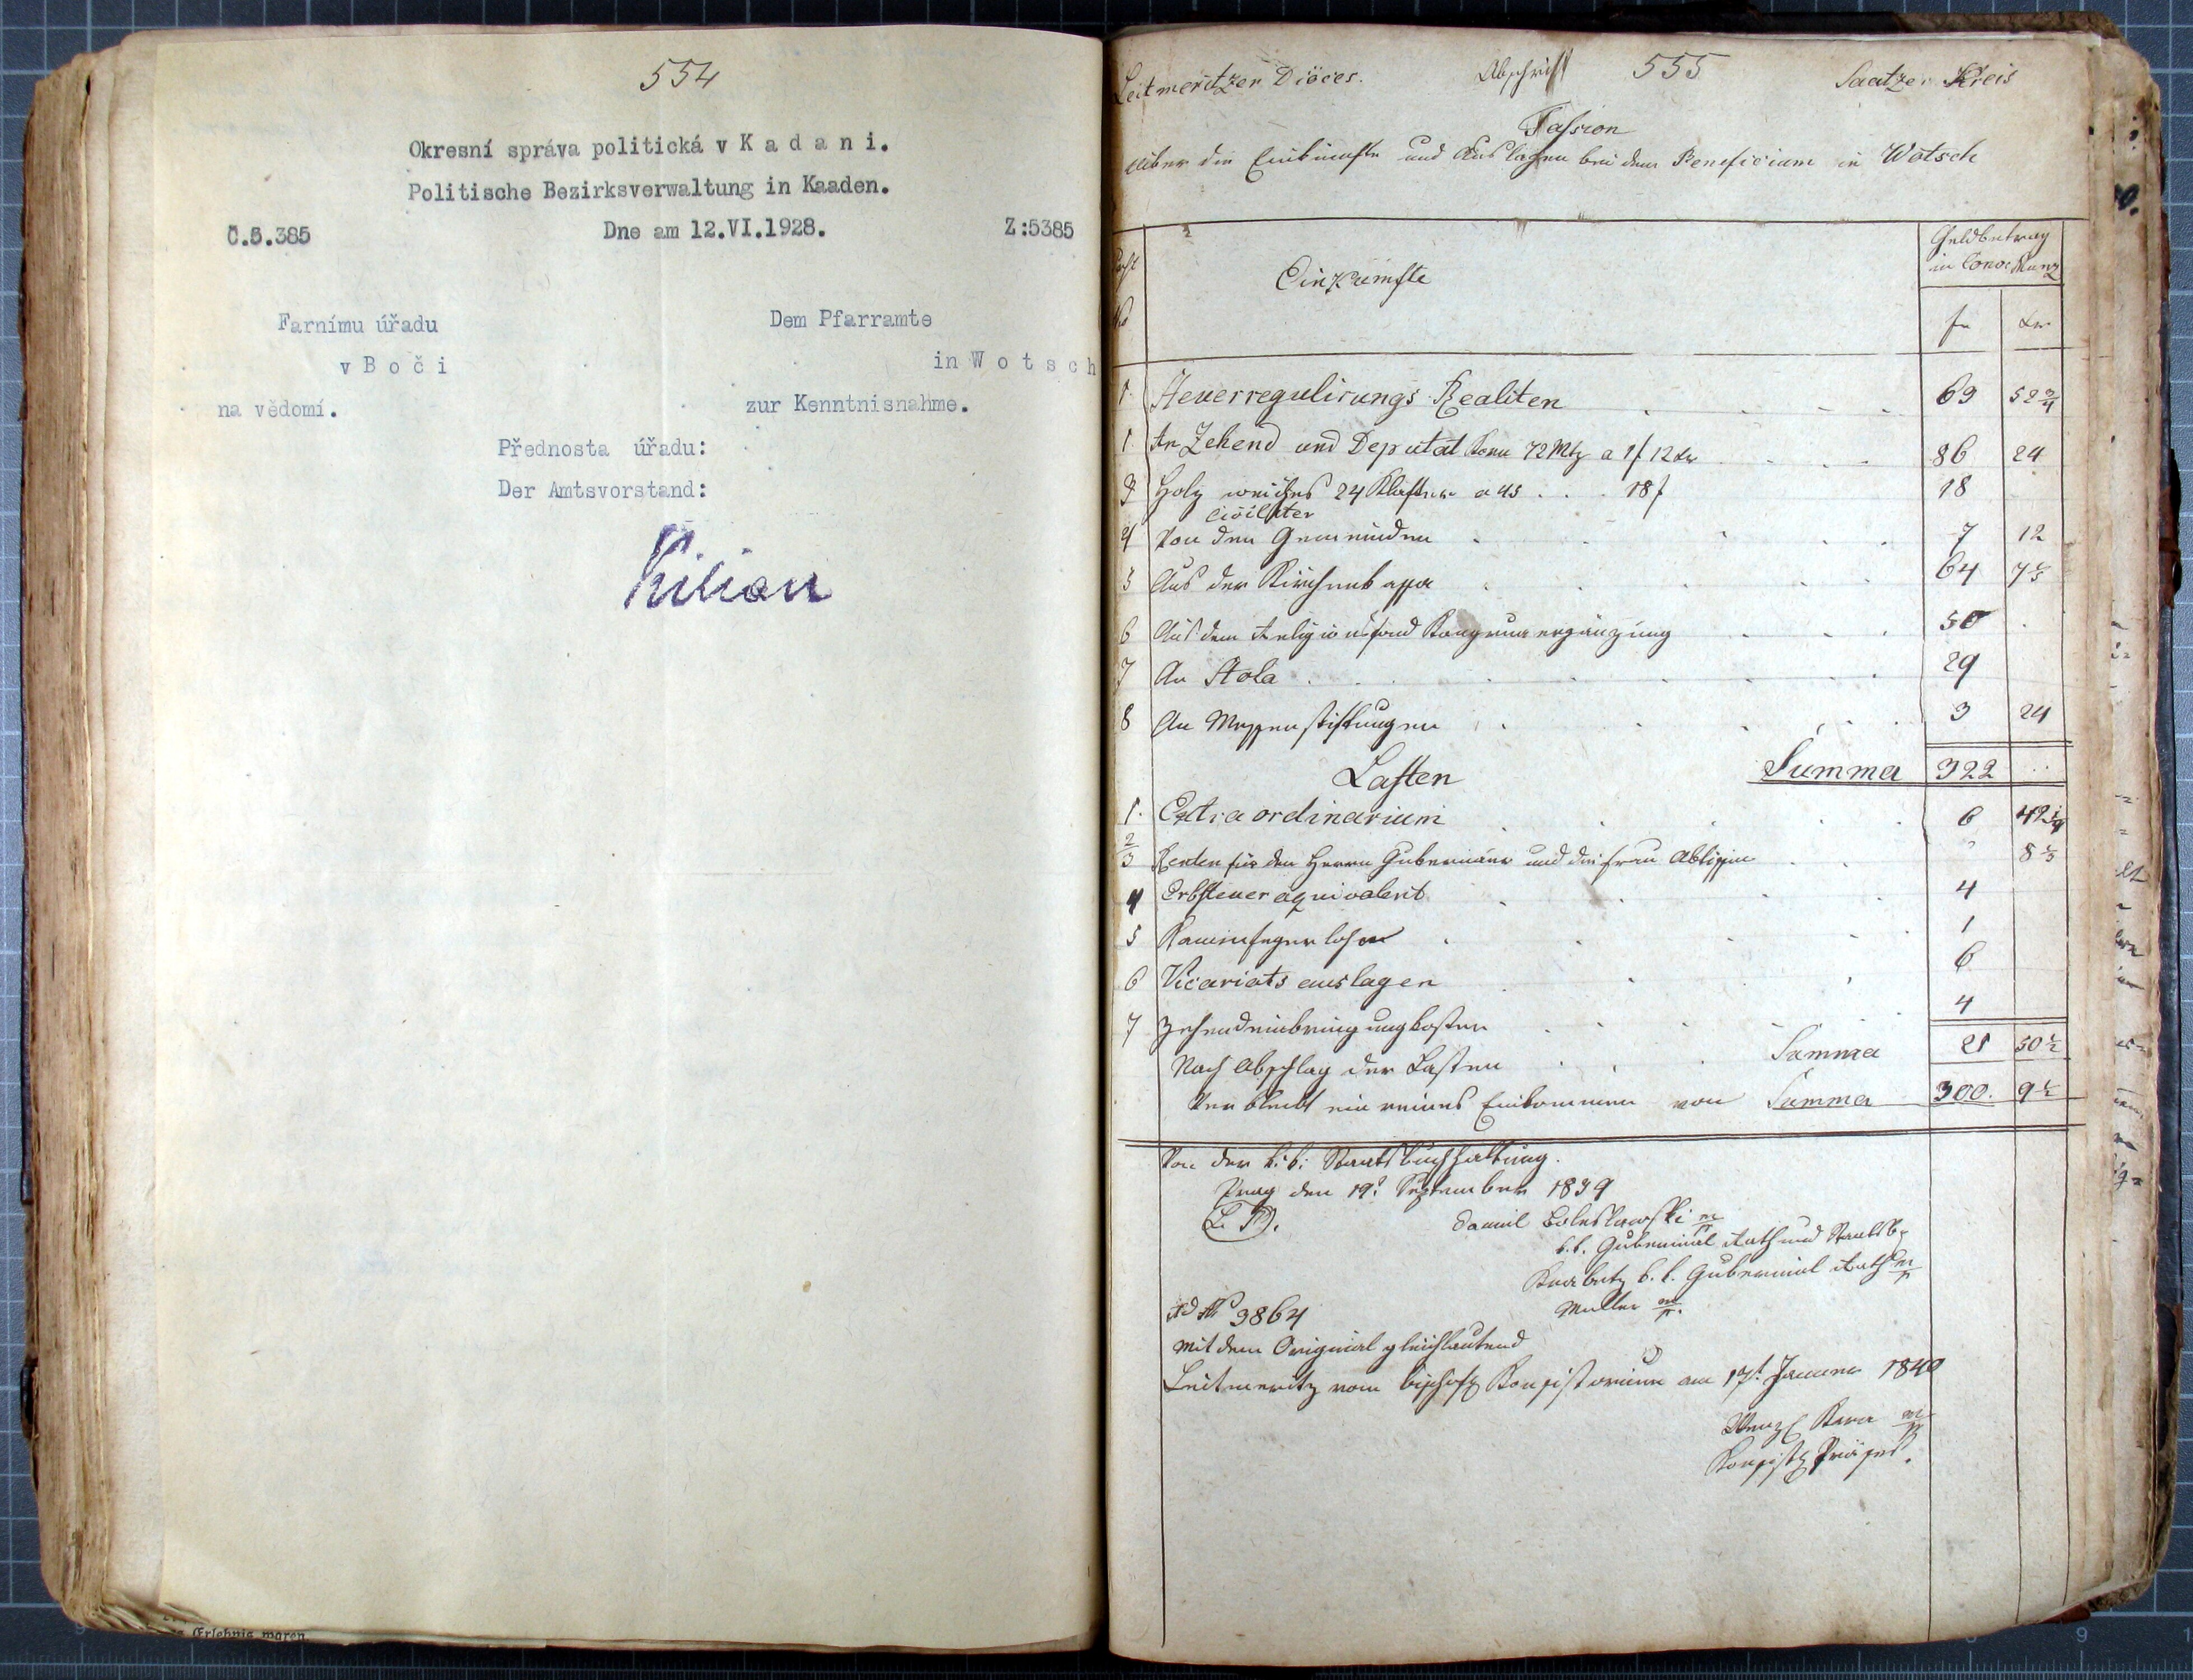 554
Okresní správa politická v K a d a n i.
Politische Bezirksverwaltung in Kaaden.
Č.5.385 Dne am 12.VI.1928. Z:5385
Farnímu úřadu Dem Pfarramte
v B o č i in W o t s c h
na vědomí. zur Kenntnisnahme.
Přednosta úřadu:
Der Amtsvorstand:
Kilian
Erlebnis waren
Leitmeritzer Diöces. Abschrift 555 Saatzer Kreis
Fassion
über die Einkünfte und Auslagen bei dem Beneficium in Wotsch
Einkünfte Geldbetrag
in Conv. Münz
fr xr
1. Steuerregulirungs Realiten 69 52 3/4
An Zehend und Deputat Korn 72 Mtz a 1f 12 xr 86 24
3 Holz weiches 24 Klafter a 45 . . . 18f 18
civiliter
4 Von den Gemeinden 7 12
5 Aus der Kirchenkassa 64 7
6 Aus dem Religionsfond Kongruaergänzung 50
7 An Stola 29
8 An Messenstiftungen 3 24
Summa 322
Lasten
1. Extraordinarium 6 42
2
3 Renten für den Herrn und die Frau 8
4 Erbsteueräquivalent 4
5 Kaminfegerlohn 1
6 Vicariatsauslagen 6
7 Zehendeinbringungkosten 4
Nach Abschlag der Lasten Summa 21 50 1/2
Verbleibt ein reines Einkommen von Summa 300. 9 1/2
Von der k: k: Staatsbuchhaltung.
Prag den 19t September 1839
(L. S.) Daniel m/p
k. k. Gubernial Rath und Staatsb.
k. k. Gubernial Rath m/p
Ad No 3864 Müller m/p.
Mit dem Original gleichlautend
Leitmeritz vom bischöfl Konsistorium am 17t Januar 1840
Wenzl m/p
Konsist Präses.